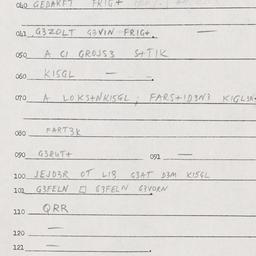 040 GEDAKFT FRIG+
041 G3ZOLT G3VIN FRIG+. —
050 A CI GROJS3 S+TIK
060 KISGL —
070 A LOKS+NKISGL, FARS+1D3N3
080 FART3K
090 G3RUT+ 091 —
100 JEJD3R OT LIB G3AT D3M KISGL
101 G3FELN □ G3FELN G3VORN
110 QRR
120 —
121 —